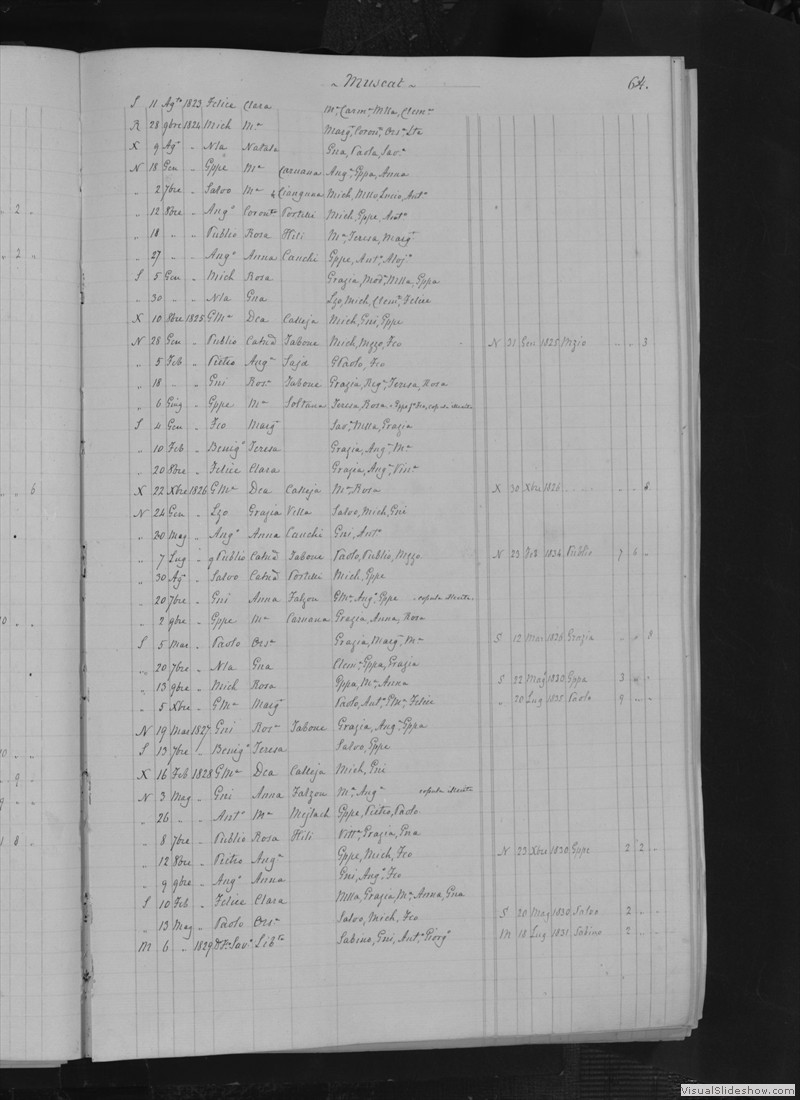 ~ Muscat ~ 64.
S 11 Agto 1823 Felice Clara Ma, Carma, Mlla, Clema
R 28 9bre 1824 Mich Ma Margta, Coronta, Orsa, Lta
X 9 Agto " Nla Natala Gna, Paola, Sava
N 18 Gen " Gppe Ma Caruana Anga, Gppa, Anna
" 2 7bre " Salvo Ma Cianguna Mich, Mllo, Lucio, Anto
" 12 8bre " Ango Coronta Portelli Mich, Gppe, Anto
" 18 " " Publio Rosa Hili Ma, Teresa, Margta
" 27 " " Ango Anna Cauchi Gppe, Anto, Alojo
S 5 Gen " Mich Rosa Grazia, Moda, Mlla, Gppa
" 30 " " Nla Gna Lzo, Mich, Clemo, Felice
X 10 8bre 1825 GMa Dca Calleja Mich, Gni, Gppe
N 28 Gen " Publio Catna Tabone Mich, Mzzo, Fco N 31 Gen 1825 Mzio " " 3
" 5 Feb " Pietro Anga Saja GPaolo, Fco
" 18 " " Gni Rosa Tabone Grazia, Rega, Teresa, Rosa
" 6 Giug " Gppe Ma Soltana Teresa, Rosa
S 4 Gen " Fco Margta Sava, Mlla, Grazia
" 10 Feb " Benigo Teresa Grazia, Anga, Ma
" 20 8bre " Felice Clara Grazia, Anga, Vina
X 22 Xbre 1826 GMa Dca Calleja Ma, Rosa X 30 Xbre 1826 " " 8
N 24 Gen " Lzo Grazia Villa Salvo, Mich, Gni
" 30 Mag " Ango Anna Cauchi Gni, Anto
" 7 Lug " Publio Catna Tabone Paolo, Publio, Mzzo N 23 Feb 1834 Publio 7 6 "
" 30 Ag " Salvo Catna Portelli Mich, Gppe
" 20 7bre " Gni Anna Falzon GMa, Ango, Gppe
" 2 9bre " Gppe Ma Caruana Grazia, Anna, Rosa
S 5 Mar " Paolo Orsa Grazia, Margta, Ma S 12 Mar 1826 Grazia " " 8
" 20 7bre " Nla Gna Clema, Gppa, Grazia
" 13 9bre " Mich Rosa Gppa, Ma, Anna S 22 Mag 1830 Gppa 3 " "
" 5 Xbre " GMa Margta Paolo, Anto, GMa, Felice " 20 Lug 1835 Paolo 9 " "
N 19 Mar 1827 Gni Rosa Tabone Grazia, Anga, Gppa
S 13 7bre " Benigo Teresa Salvo, Gppe
X 16 Feb 1828 GMa Dca Calleja Mich, Gni
N 3 Mag " Gni Anna Falzon Ma, Anga
" 26 " " Anto Ma Mejlach Gppe, Pietro, Paolo
" 8 7bre " Publio Rosa Hili Vitta, Grazia, Gna
" 12 8bre " Pietro Anga Gppe, Mich, Fco N 23 Xbre 1830 Gppe 2 2 "
" 9 9bre " Ango Anna Gni, Ango, Fco
S 10 Feb " Felice Clara Mlla, Grazia, Ma, Anna, Gna
" 13 Mag " Paolo Orsa Salvo, Mich, Fco S 20 Mag 1830 Salvo 2 " "
M 6 " 1829 Dr Fco Savo Libta Sabino, Gni, Anto, Giorgo M 18 Lug 1831 Sabino 2 " "
VisualSlideshow.com